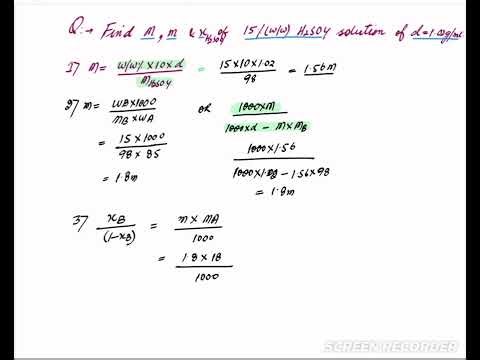 Q.→ Find M, m & xH2SO4 of 15%(w/w) H2SO4 solution of d=1.02g/mL
1) M= w/w% ×10×d / MH2SO4 = 15×10×1.02 / 98 = 1.56m
2) m= WB×1000 / MB×WA or 1000×M / 1000×d - M×MB
= 15×1000 / 98×85 1000×1.56 / 1000×1.02 - 1.56×98
= 1.8m = 1.8m
3) xB / (1-xB) = m×MA / 1000
= 1.8×18 / 1000
SCREEN RECORDER